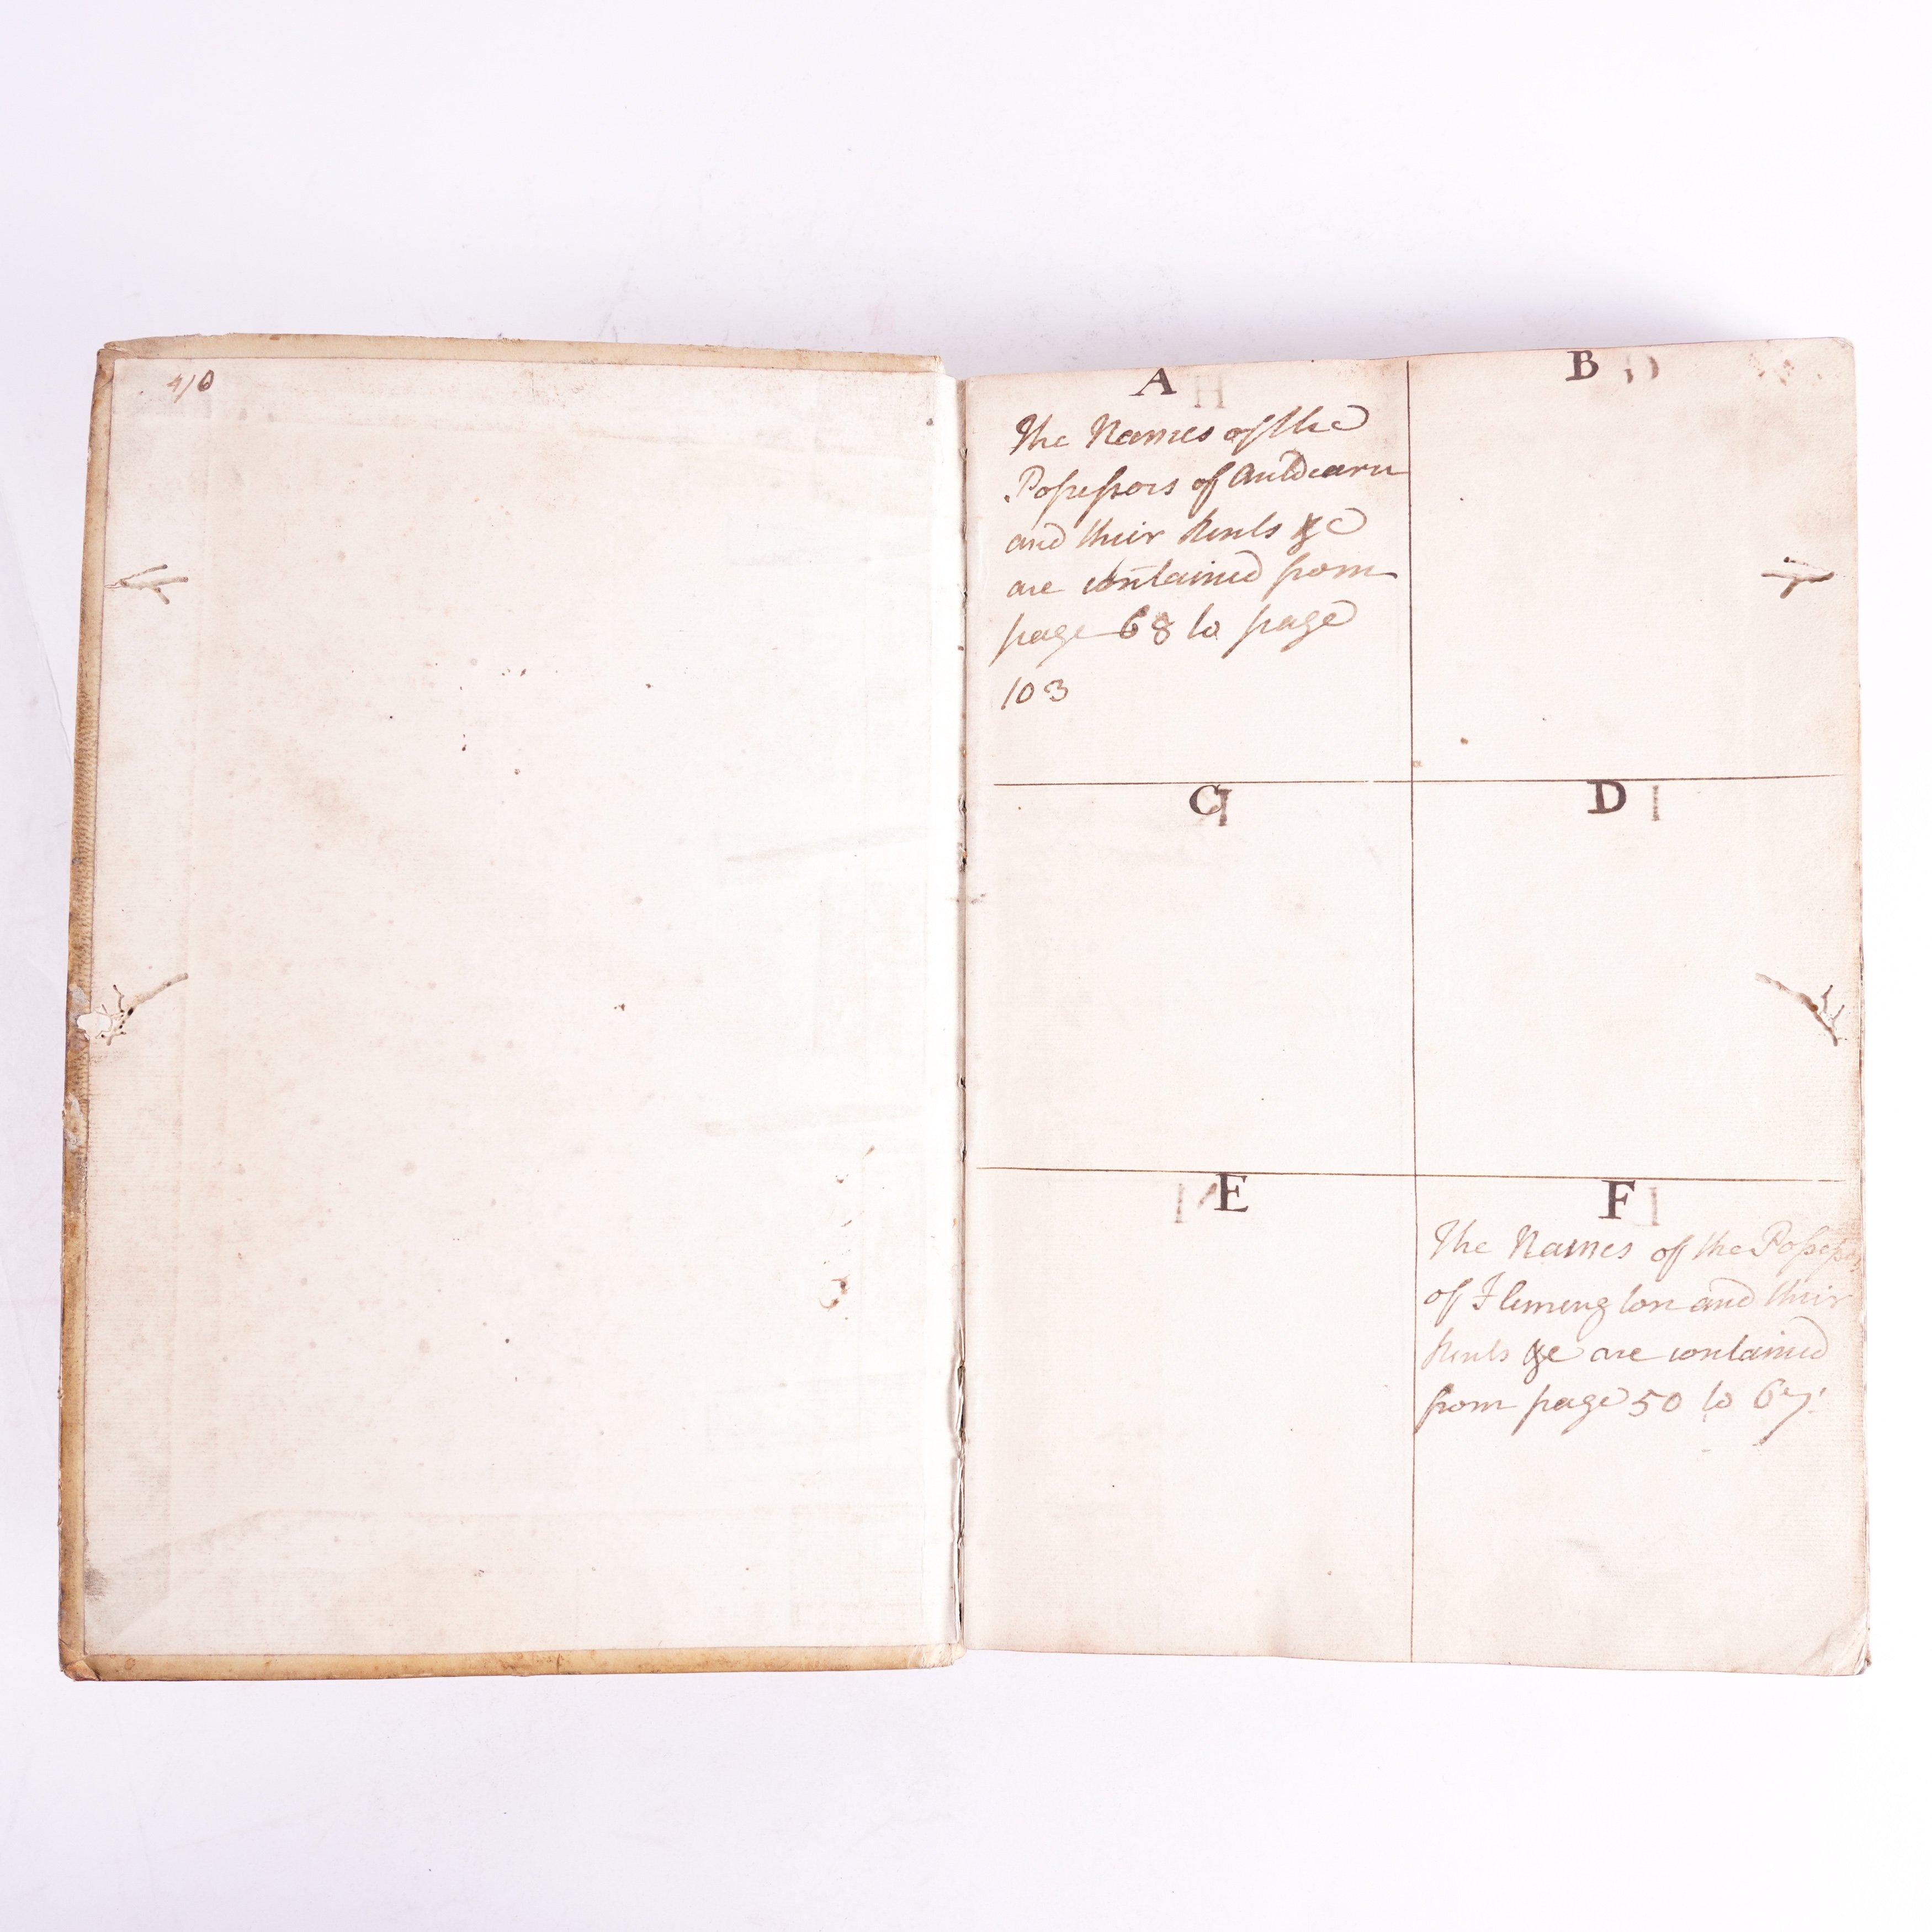 4/0
A
The Names of the
Possessors of Auldearn
and their Rents &c
are contained from
page 68 to page
103
B
C
D
E
F
The Names of the Possessors
of Flemengton and their
Rents &c are contained
from page 50 to 67.